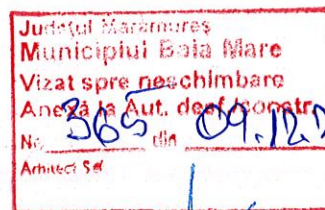 Județul Maramureș
Municipiul Baia Mare
Vizat spre neschimbare
Anexă la Aut. desf/constr.
Nr. 365 din 09.12.
Arhitect Șef